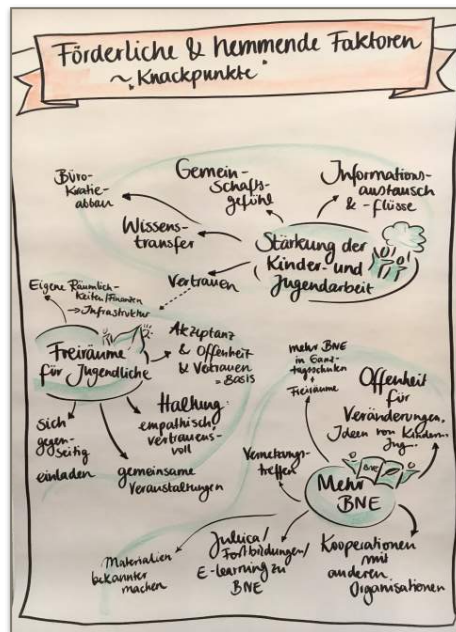 Förderliche & hemmende Faktoren
~ Knackpunkte
Büro-
kratie-
abbau
Gemein-
schafts-
gefühl
Informations-
austausch
& -flüsse
Wissens-
transfer
Stärkung der
Kinder- und
Jugendarbeit
Vertrauen
Eigene Räumlich-
keiten/Finanzen
→ Infrastruktur
Freiräume
für Jugendliche
Akzeptanz
& Offenheit
& Vetrauen
= Basis
Haltung:
empathisch
vertrauens-
voll
Sich
gegen-
seitig
einladen
gemeinsame
Veranstaltungen
mehr BNE
in Ganz-
tagsschulen
+
Freiräume
Offenheit
für
Veränderungen,
Ideen von Kindern
Jug.
Vernetzungs-
treffen
BNE
Mehr
BNE
Materialien
bekannter
machen
Juleica/
Fortbildungen/
E-learning zu
BNE
Kooperationen
mit
anderen
Organisationen